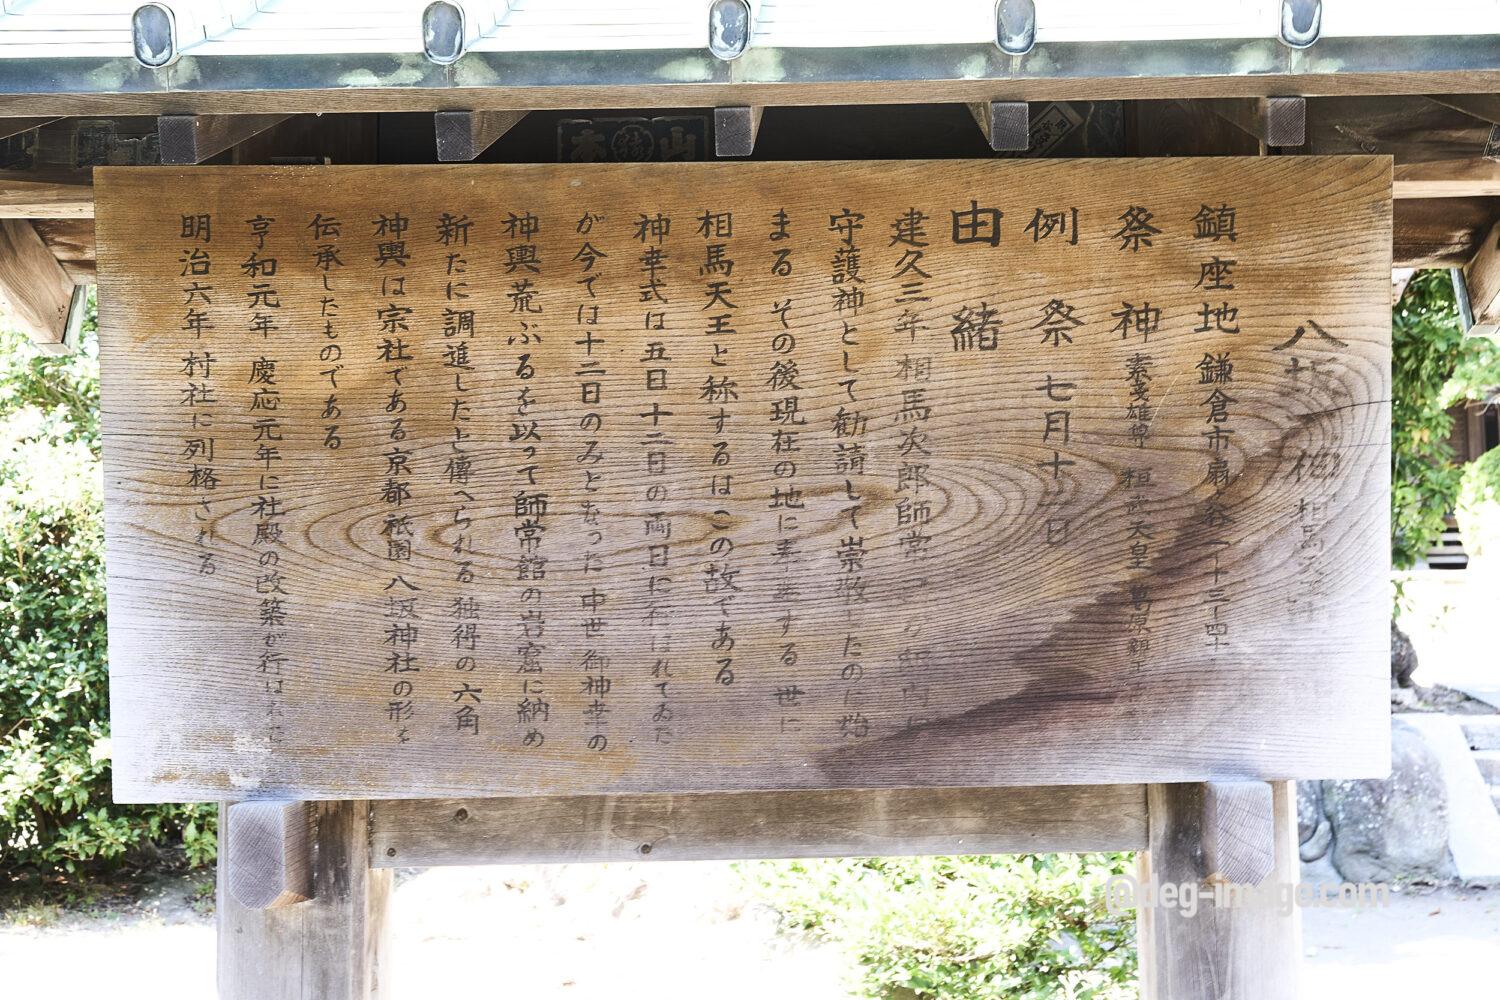 八坂神社 相馬天王
鎮座地 鎌倉市扇ヶ谷一十三ー四十
祭神 素戔雄尊 桓武天皇 葛原親王
例祭 七月十二日
由緒
建久三年 相馬次郎師常
守護神として勧請して崇敬したのに始
まる その後現在の地に奉遷する 世に
相馬天王と称するはこの故である
神幸式は五日十二日の両日に行はれてゐた
が今では十二日のみとなった 中世御神幸の
神輿荒ぶるを以って師常館の岩窟に納め
新たに調進したと傳へられる 独得の六角
神輿は宗社である京都祇園八坂神社の形を
伝承したものである
享和元年 慶応元年に社殿の改築が行はれた
明治六年村社に列格される
山
本
@deg-image.com